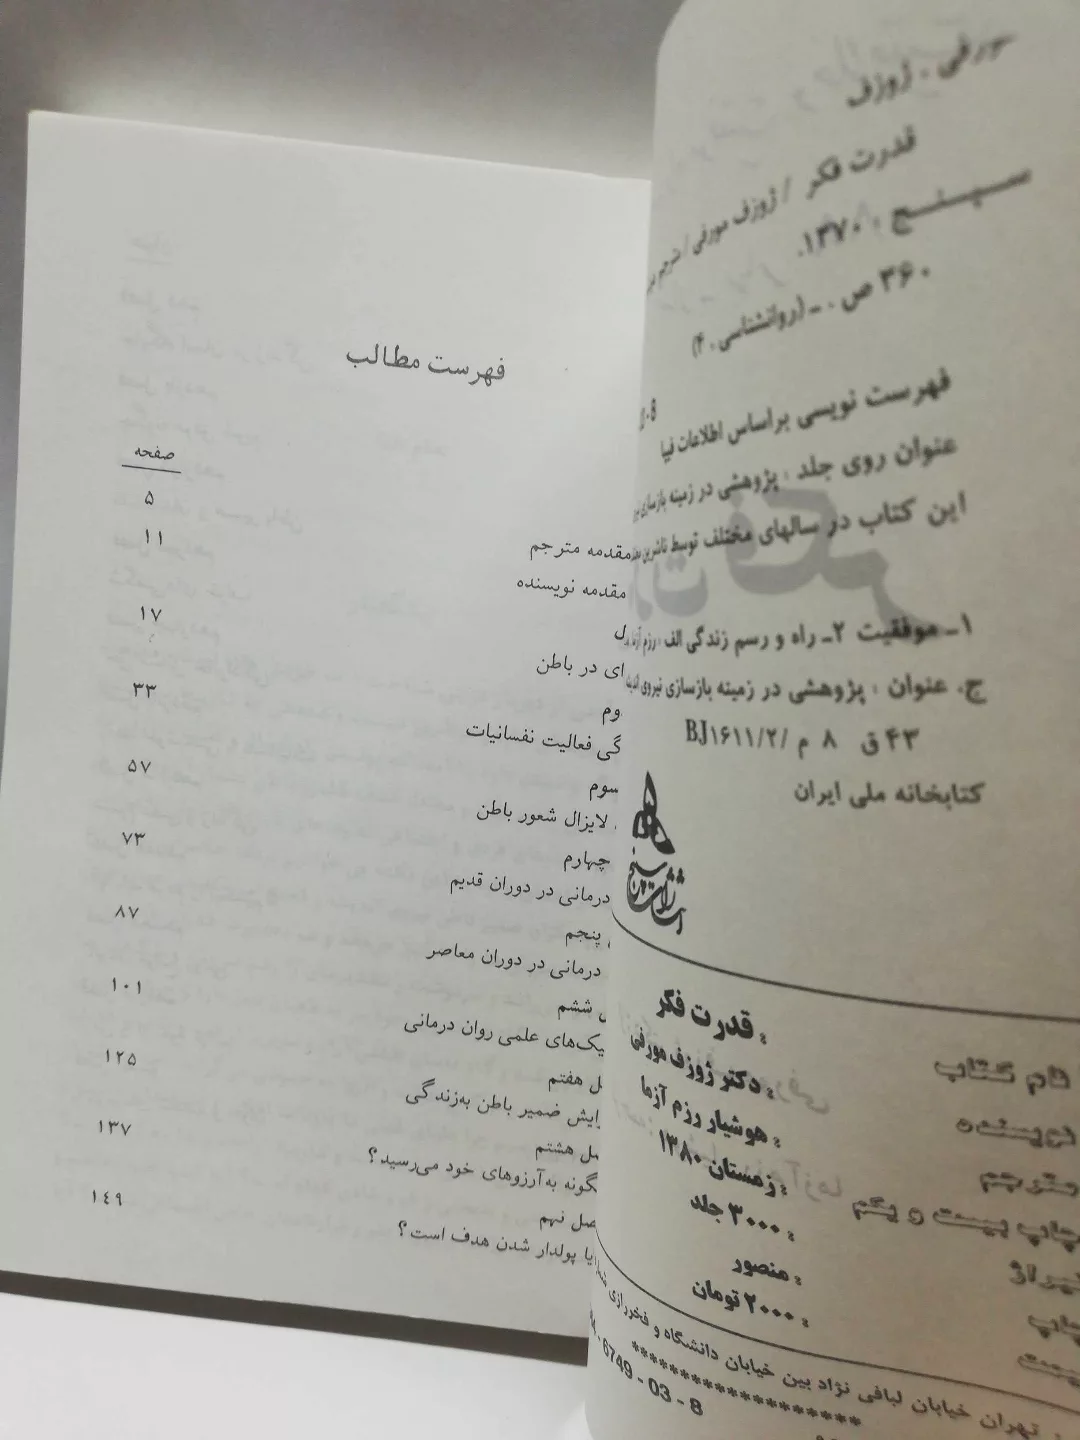 مورفی، ژوزف
قدرت فکر / ژوزف مورفی / مترجم
سپنج، ۱۳۷۰.
۳۶۰ ص. ـ (روانشناسی، ۴)
8-
فهرست نویسی براساس اطلاعات فیپا
عنوان روی جلد : پژوهشی در زمینه بازسازی
این کتاب در سالهای مختلف توسط ناشرین
۱ـ موفقیت ۲ـ راه و رسم زندگی الف : رزم آزما
ج. عنوان : پژوهشی در زمینه بازسازی نیروی
۴۳ ق ۸ م /BJ۱۶۱۱/۲
کتابخانه ملی ایران
نام کتاب : قدرت فکر
نویسنده : دکتر ژوزف مورفی
مترجم : هوشیار رزم آزما
چاپ بیست و یکم : زمستان ۱۳۸۰
تیراژ : ۳۰۰۰ جلد
چاپ : منصور
قیمت : ۲۰۰۰ تومان
تهران خیابان لبافی نژاد بین خیابان دانشگاه و فخررازی
********************
6749 - 03 - 8
فهرست مطالب
صفحه
مقدمه مترجم ۵
مقدمه نویسنده ۱۱
ل
ای در باطن ۱۷
وم
گی فعالیت نفسانیات ۳۳
سوم
لایزال شعور باطن ۵۷
چهارم
درمانی در دوران قدیم ۷۳
پنجم
درمانی در دوران معاصر ۸۷
ششم
یک‌های علمی روان درمانی ۱۰۱
ل هفتم
ایش ضمیر باطن به‌زندگی ۱۲۵
صل هشتم
گونه به‌آرزوهای خود می‌رسید؟ ۱۳۷
صل نهم
یا پولدار شدن هدف است؟ ۱۴۹